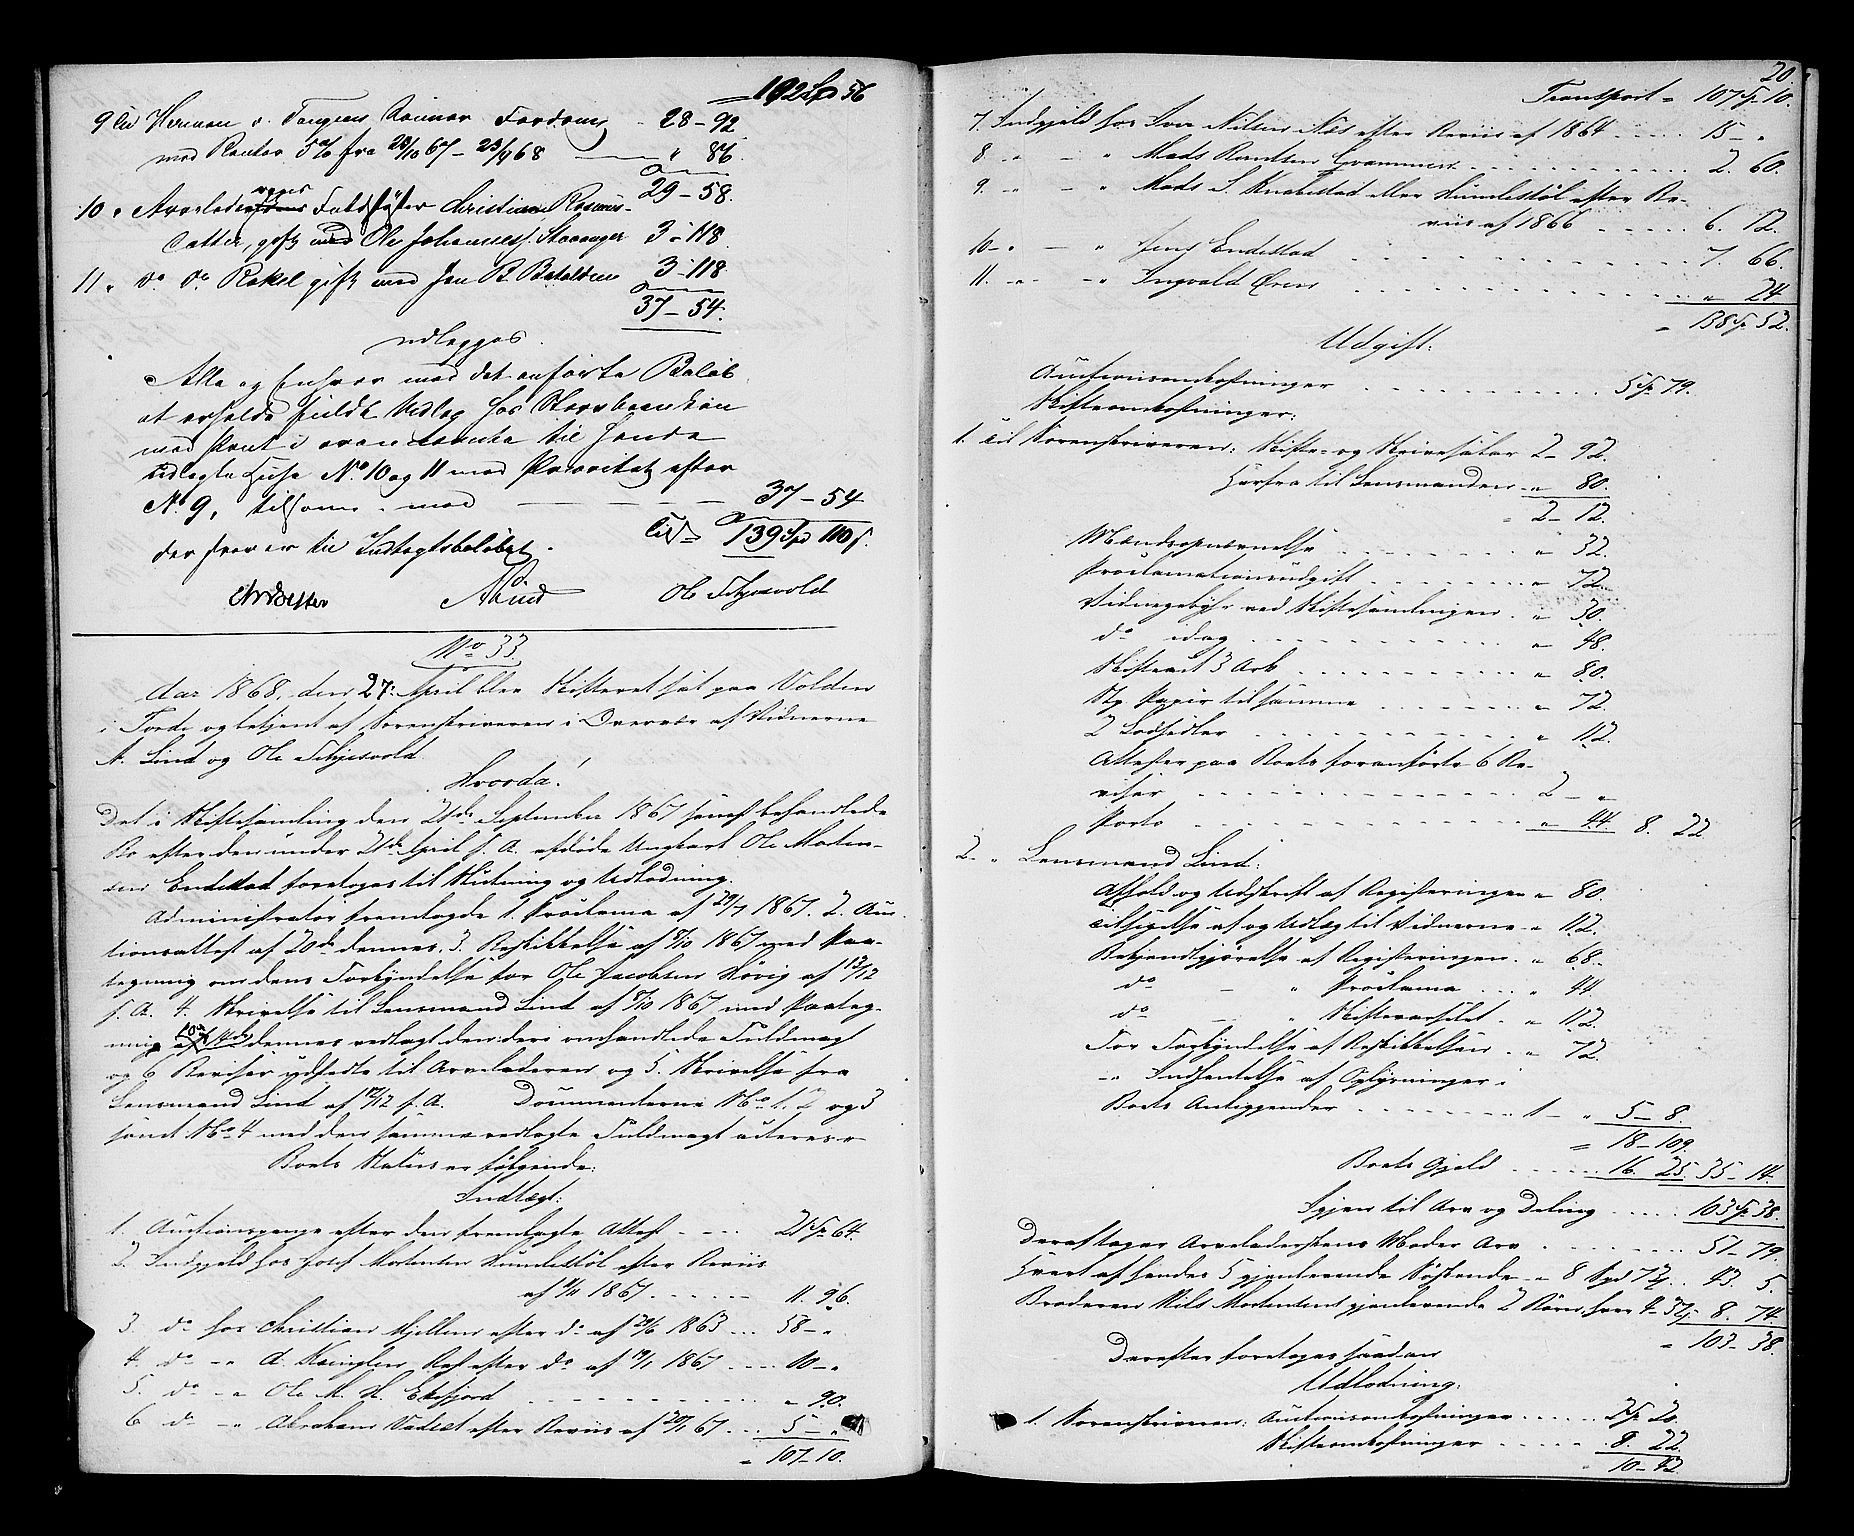 102 Sp 56
9 Til Herman v. Tangens Fordring 28-92
med Renter 5% fra 28/10 67 - 23/4 68 " 86
29-58.
10 " Arveladerens Christiane Rasmus-
datter, gift med Ole Johannes. Stavanger 3-118
11 " do do Rakel gift med Jan B. Bataldsen 3-118
37-54.
udlægges
Alle og Enhver med det anførte Beløb
at erholde fuldt Udlæg hos Storebrænken
med Pant i ovennævnte til hende
udlagte Huse No 10 og 11 med Prioritet efter
No 9, tilsam. med 37-54
der svarer til Indtægtsbeløbet. Tils 139 Spd 110 s.
A Lind Ole Schjesvold
No 33.
Aar 1868, den 27. April blev Skifteret sat paa Volden
i Førde og betjent af Sorenskriveren i Overvær af Vidnerne
A. Lind og Ole Schjesvold.
Hvorda!
Det i Skiftesamling den 21de September 1867 senest behandlede
Bo efter den under 21de April s. A. afdøde Ungkarl Ole Morten-
sen Endestad foretoges til Slutning og Udlodning.
Administrator fremlagde 1. Proclama af 29/7 1867. 2. Auc-
tionsattest af 20de dennes. 3. Beskikkelse af 8/10 1867 med Paa-
tegning om dens Forkyndelse for Ole Jacobsen Høvig af 12/12
s. A. 4. Skrivelse til Lensmand Lind af 8/10 1867 med Paateg-
ning af 14de dennes vedlagt den deri omhandlede Fuldmagt
og 6 Beviser udstedte til Arveladeren og 5. Skrivelse fra
Lensmand Lind af 17/12 s. A. Documenterne No 1. 2 og 3
samt No 4 med den samme vedlagte Fuldmagt acteres.
Boets Status er følgende:
Indtægt:
1. Auctionspenge efter den fremlagte Attest 21 Sp 64.
2. Indgjeld hos Josef Mortensen Hundestøl efter Beviis
af 11/11 1867 11. 96.
3. do hos Christian Hjellen efter do af 29/6 1863 58 - "
4. do - " A. af efter do af 17/1 1867 10 - "
5. do - " Ole M. H. Eikefjord " 90.
6 do - " Abraham Vadset efter Beviis af 20/1 67 5 - "
" 107-10.
20.
Transport " 107 Sp 10.
7. Indgjeld hos Iver Nilsen Næs efter Beviis af 1864 15 - "
8 " - " Mads Grammens 2. 60.
9. " - " Mads S. Knabestad eller Hundestøl efter Be-
viis af 1866 6. 12.
10 - " - " Jens Endestad 7. 66
11. - " - " Ingvald Øren " 24
" 138 Sp 52.
Udgift:
Auctionsomkostninger 5 Sp 79.
Skifteomkostninger:
1. Til Sorenskriveren: Skifte- og Skrivesalær 2-92.
Herfra til Lensmanden " 80.
" 2-12.
Mændsopnævnelse " 32.
Proclamationsudgift " 72.
Vidnegebyhr ved Skiftesamlingen " 30.
do idag " 48.
Skifteact 3 Ark " 80.
Stp. Papir til samme " 72.
2 Lodsedler " 112.
Attester paa Boets foranførte 6 Be-
viser 2 - "
Porto " 44. 8. 22
2. " Lensmand Lind:
Afhold og Udskrift af Registreringen " 80.
Tilsigelse af og Udlæg til Vidnerne " 112.
Bekjendtgjørelse af Registreringen " 68.
do - " Proclama " 44.
do - " Skiftevarselet " 112.
For Forkyndelse af Beskikkelsen " 72.
- " Indhentelse af Oplysninger i
Boets Anliggender 1 - " 5-8.
" 18-109.
Boets Gjeld 16. 25. 35-14.
Igjen til Arv og Deling 103 Sp 38.
Deraf tager Arveladerskens Moder Arv 51-79.
Hvert af hendes 5 gjenlevende Søskende " 8 Spd 73 s. 43. 5.
Broderen Nils Mortensens gjenlevende 2 Børn, hver 4-37 s. 8. 74.
" 103-38.
Derefter foretoges saadan
Udlodning:
1. Sorenskriveren: Auctionsomkostninger 2 Sp 20.
Skifteomkostninger 8. 22.
" 10-42.